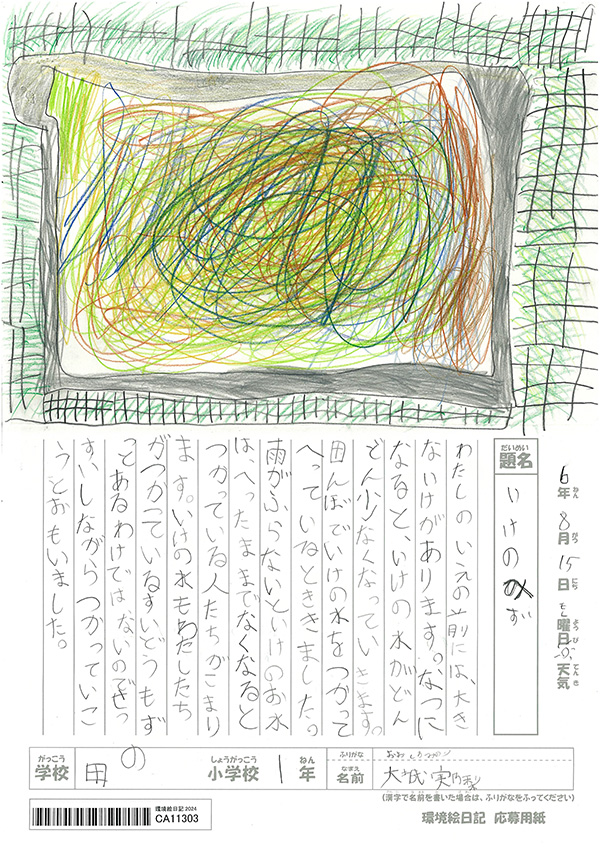 6年 8月 15日 曜日 天気
ねん がつ にち ようび てんき
だいめい
題名
いけのみず
わたしのいえの前には、大き
ないけがあります。なつに
なると、いけの水がどん
どん少なくなっていきます。
田んぼでいけの水をつかって
へっているとききました。
雨がふらないといけのお水
は、へったままでなくなると
つかっている人たちがこまり
ます。いけの水もわたしたち
がつかっているすいどうもず
っとあるわけではないのでせっ
すいしながらつかっていこ
うとおもいました。
がっこう しょうがっこう ねん ふりがな
学校 小学校 1年 なまえ
名前 大城
(漢字で名前を書いた場合は、ふりがなをふってください)
環境絵日記2024
CA11303
環境絵日記 応募用紙